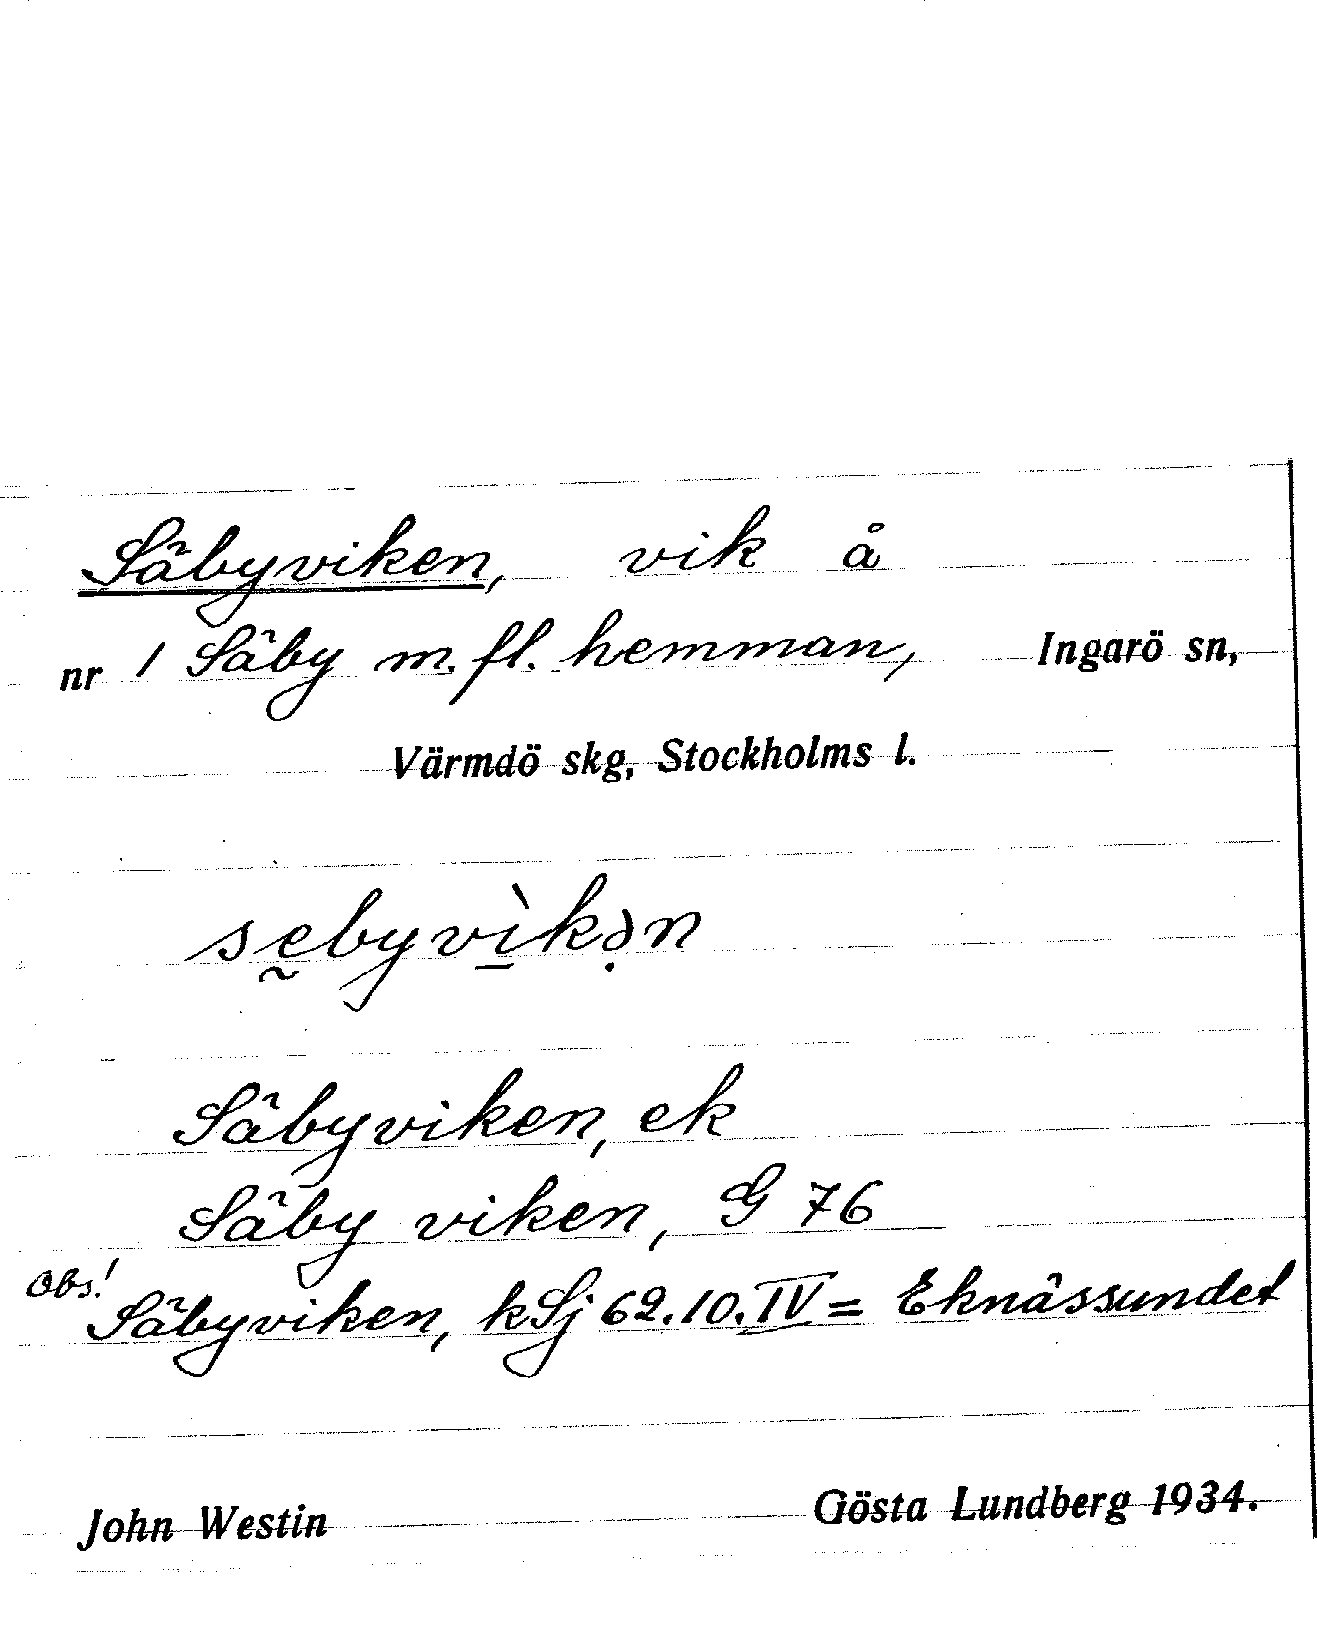 Säbyviken, vik å
nr 1 Säby m. fl. hemman, Ingarö sn,
Värmdö skg, Stockholms l.
sḛbyvì̱kə̣n
Säbyviken, ek
Säby viken, G 76
Obs! Säbyviken, kSj 62.10.IV = Eknässundet
John Westin Gösta Lundberg 1934.